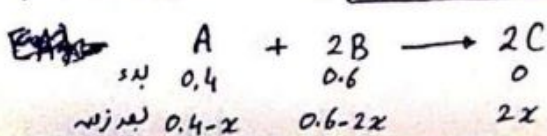 A + 2B ⟶ 2C
بدء 0.4 0.6 0
بعد زمن 0.4-x 0.6-2x 2x